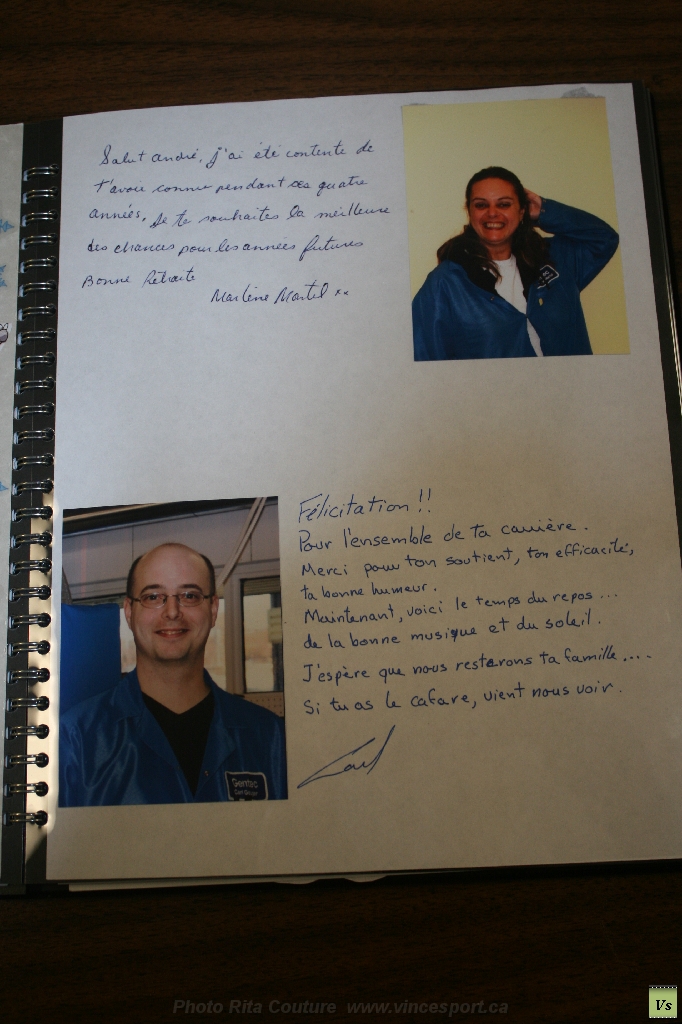 Salut andré, j'ai été contente de
t'avoir connu pendant ces quatre
années. Je te souhaites la meilleure
des chances pour les années futures
Bonne Retraite
Marlène Martel xx
Félicitation !!
Pour l'ensemble de ta carrière.
Merci pour ton soutient, ton efficacité,
ta bonne humeur.
Maintenant, voici le temps du repos...
de la bonne musique et du soleil.
J'espère que nous resterons ta famille....
Si tu as le cafare, vient nous voir.
Carl
Gentec
Photo Rita Couture www.vincesport.ca
Vs